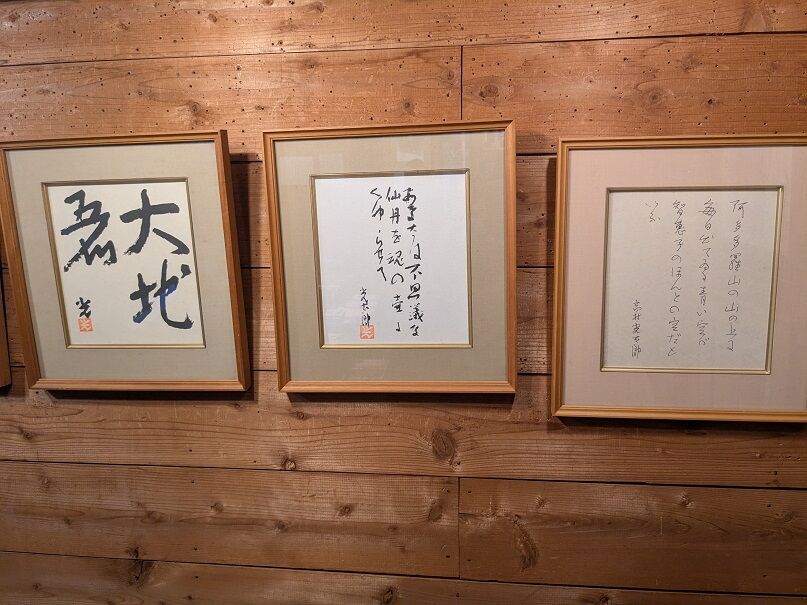 大地
麗
光
あなたは不思議な
仙丹を魂の壺に
くゆらせて
光太郎
阿多多羅山の山の上に
毎日出てゐる青い空が
智恵子のほんとの空だと
いふ
高村光太郎